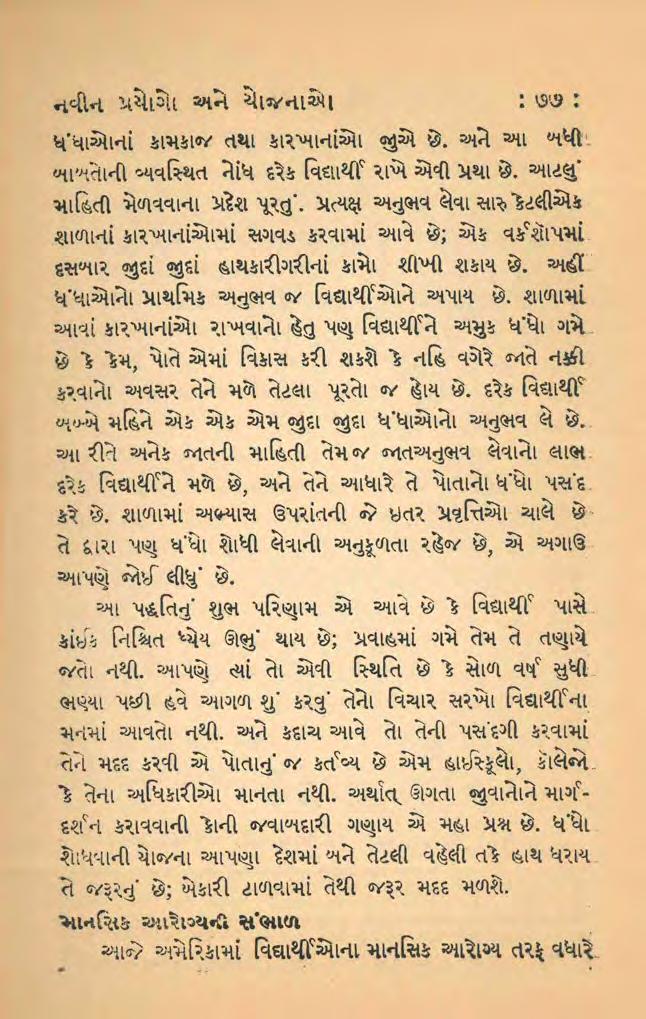 નવીન પ્રયોગો અને યોજનાઓ : ૭૭ :
ધંધાઓનાં કામકાજ તથા કારખાનાંઓ જુએ છે. અને આ બધી
બાબતોની વ્યવસ્થિત નોંધ દરેક વિદ્યાર્થી રાખે એવી પ્રથા છે. આટલું
માહિતી મેળવવાના પ્રદેશ પૂરતું. પ્રત્યક્ષ અનુભવ લેવા સારુ કેટલીએક
શાળાનાં કારખાનાંઓમાં સગવડ કરવામાં આવે છે; એક વર્કશૉપમાં
દસબાર જુદાં જુદાં હાથકારીગરીનાં કામો શીખી શકાય છે. અહીં
ધંધાઓનો પ્રાથમિક અનુભવ જ વિદ્યાર્થીઓને અપાય છે. શાળામાં
આવાં કારખાનાંઓ રાખવાનો હેતુ પણ વિદ્યાર્થીને અમુક ધંધો ગમે
છે કે કેમ, પોતે એમાં વિકાસ કરી શકશે કે નહિ વગેરે જાતે નક્કી
કરવાનો અવસર તેને મળે તેટલા પૂરતો જ હોય છે. દરેક વિદ્યાર્થી
બબ્બે મહિને એક એક એમ જુદા જુદા ધંધાઓનો અનુભવ લે છે.
આ રીતે અનેક જાતની માહિતી તેમજ જાતઅનુભવ લેવાનો લાભ
દરેક વિદ્યાર્થીને મળે છે, અને તેને આધારે તે પોતાનો ધંધો પસંદ
કરે છે. શાળામાં અભ્યાસ ઉપરાંતની જે ઇતર પ્રવૃત્તિઓ ચાલે છે
તે દ્વારા પણ ધંધો શોધી લેવાની અનુકૂળતા રહેજ છે, એ અગાઉ
આપણે જોઈ લીધું છે.
આ પદ્ધતિનું શુભ પરિણામ એ આવે છે કે વિદ્યાર્થી પાસે
કાંઈક નિશ્ચિત ધ્યેય ઊભું થાય છે; પ્રવાહમાં ગમે તેમ તે તણાયે
જતો નથી. આપણે ત્યાં તો એવી સ્થિતિ છે કે સોળ વર્ષ સુધી
ભણ્યા પછી હવે આગળ શું કરવું તેનો વિચાર સરખો વિદ્યાર્થીના
મનમાં આવતો નથી. અને કદાચ આવે તો તેની પસંદગી કરવામાં
તેને મદદ કરવી એ પોતાનું જ કર્તવ્ય છે એમ હાઇસ્કૂલો, કૉલેજો
કે તેના અધિકારીઓ માનતા નથી. અર્થાત્ ઊગતા જુવાનોને માર્ગ-
દર્શન કરાવવાની કોની જવાબદારી ગણાય એ મહા પ્રશ્ન છે. ધંધો
શોધવાની યોજના આપણા દેશમાં બને તેટલી વહેલી તકે હાથ ધરાય
તે જરૂરનું છે; બેકારી ટાળવામાં તેથી જરૂર મદદ મળશે.
માનસિક આરોગ્યની સંભાળ
આજે અમેરિકામાં વિદ્યાર્થીઓના માનસિક આરોગ્ય તરફ વધારે